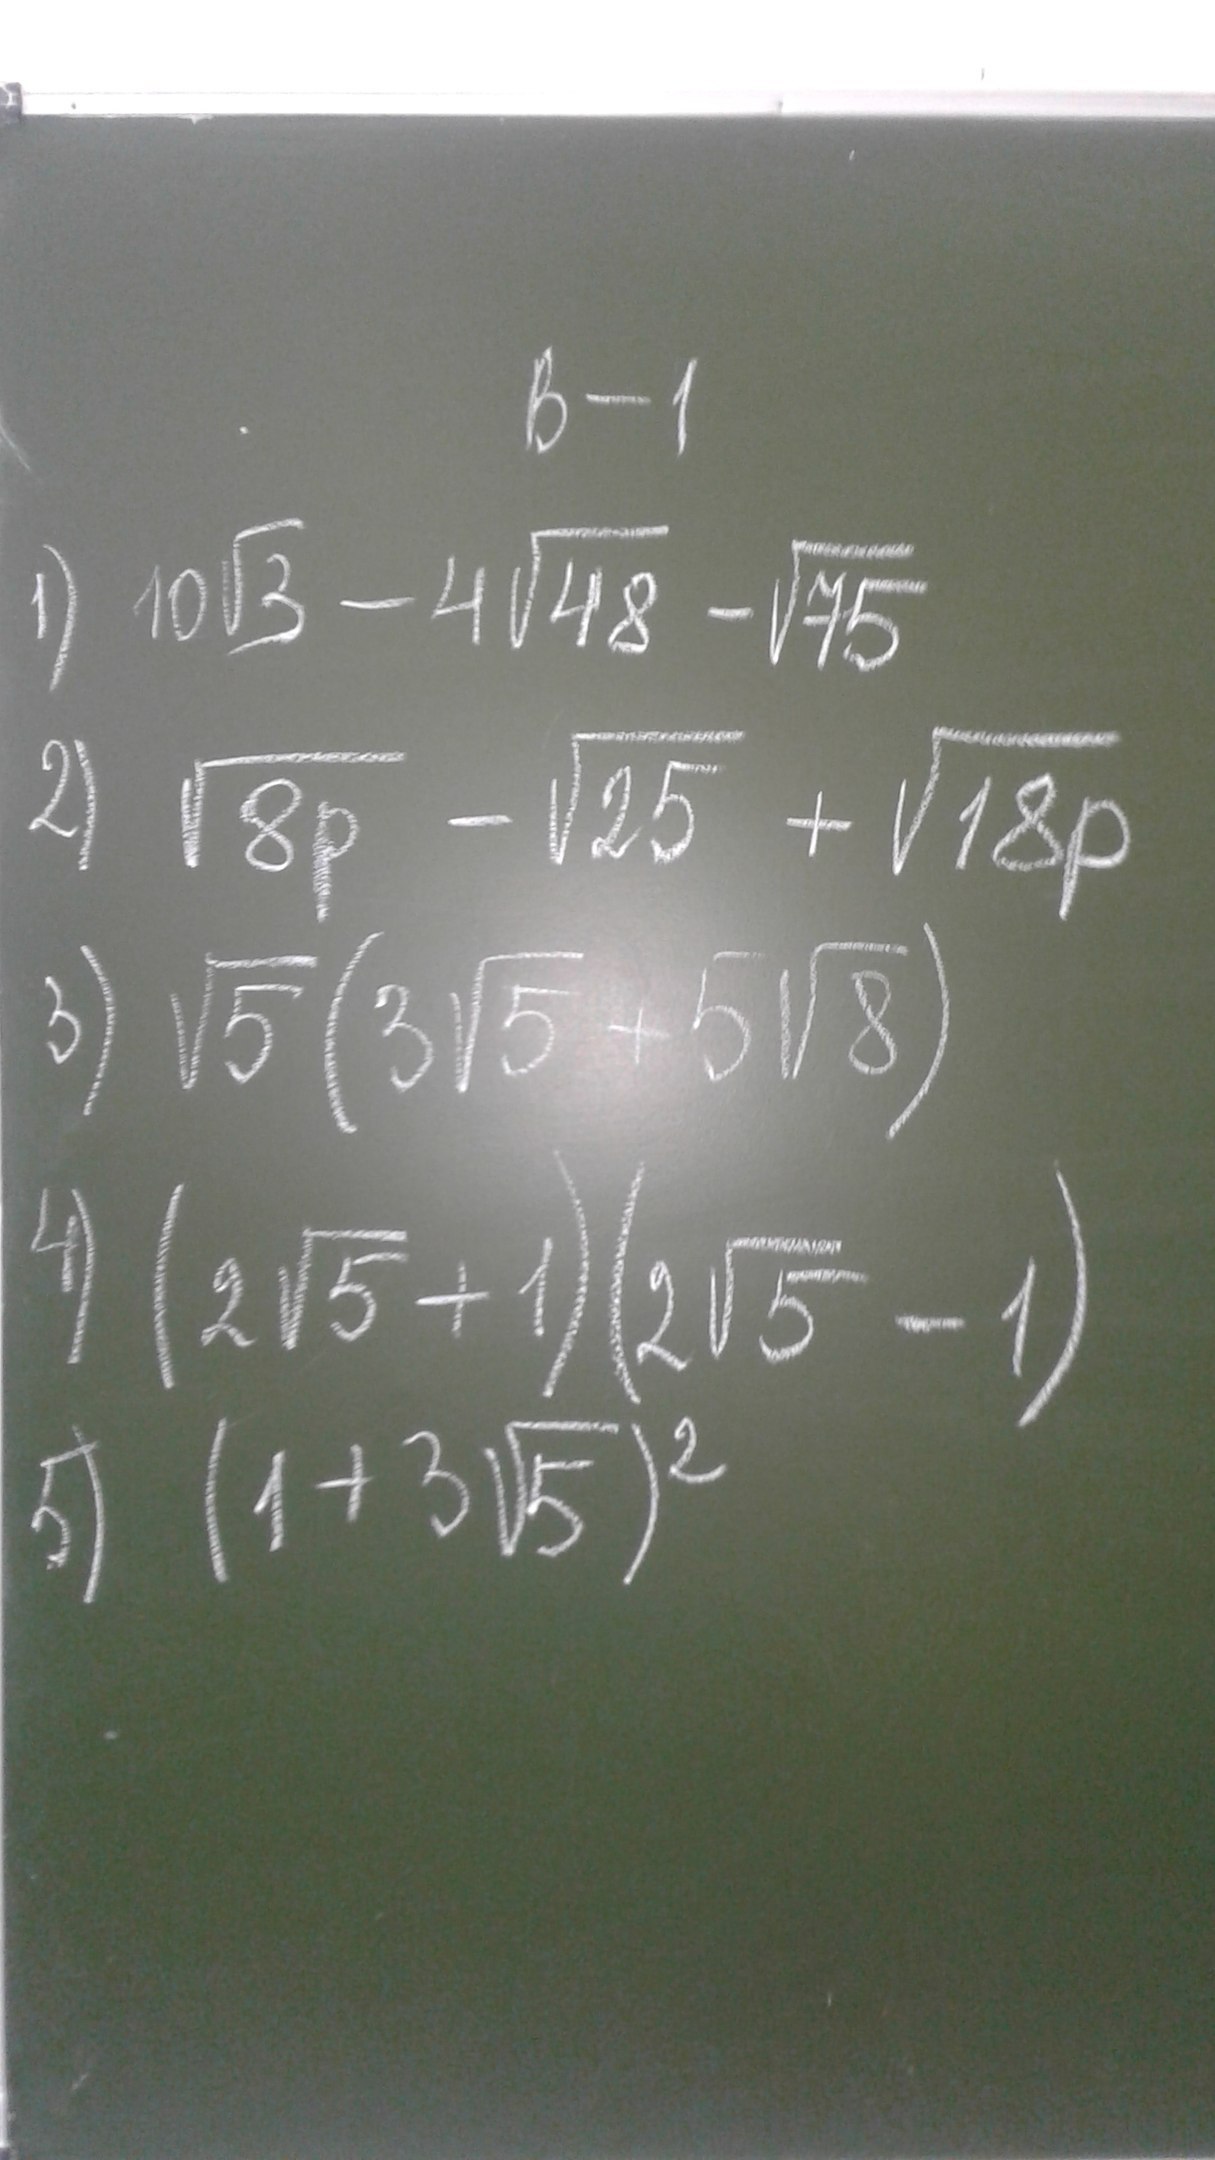 В-1
1) 10√3 - 4√48 - √75
2) √8p - √25 + √18p
3) √5(3√5 + 5√8)
4) (2√5 + 1)(2√5 - 1)
5) (1 + 3√5)²